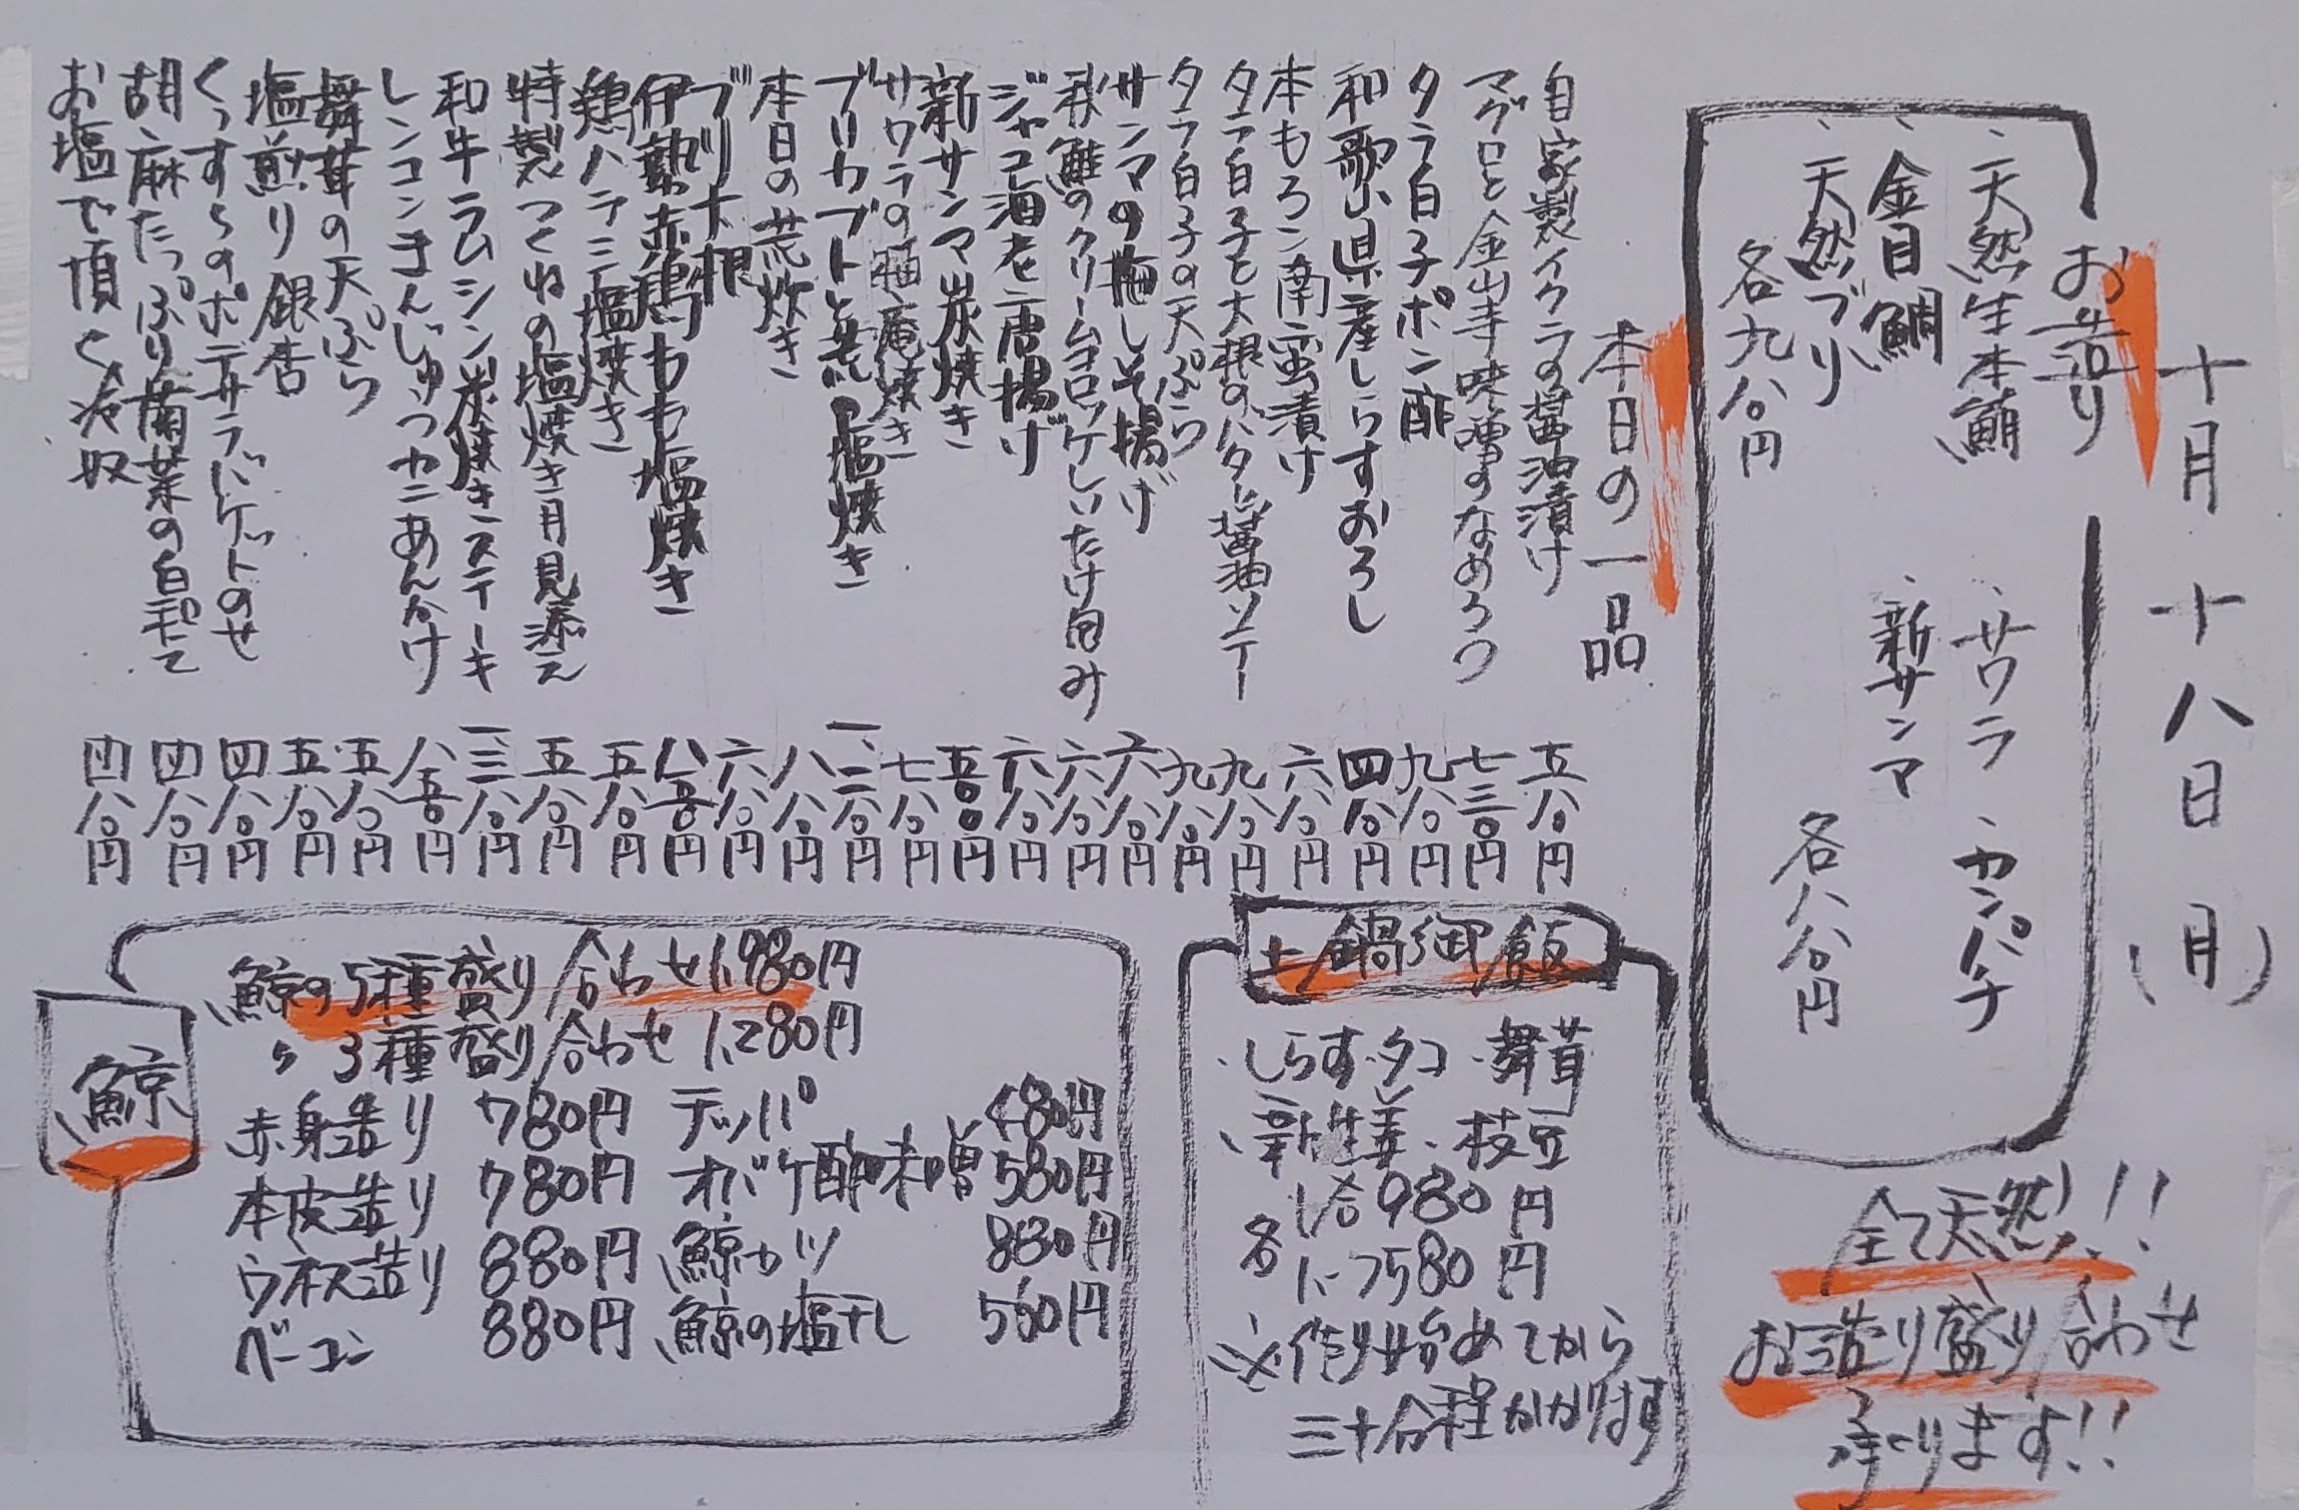 十月十八日(月)
お造り
、天然生本鮪
、サワラ
、カンパチ
、金目鯛
、新サンマ
、天然ブリ
各九八〇円
各八八〇円
全て天然!!
お造り盛り合わせ
承ります!!
本日の一品
自家製イクラの醤油漬け 五八〇円
マグロと金山寺味噌のなめろう 七三〇円
タラ白子ポン酢 九八〇円
和歌山県産しらすおろし 四八〇円
本もろこ南蛮漬け 六八〇円
タラ白子と大根のバター醤油ソテー 九八〇円
タラ白子の天ぷら 九八〇円
サンマの梅しそ揚げ 六八〇円
秋鮭のクリームコロッケしいたけ包み 六八〇円
ジャコ海老唐揚げ 六八〇円
新サンマ炭焼き 五〇〇円
サワラの幽庵焼き 七八〇円
ブリカブトと荒の塩焼き 一、二八〇円
本日の荒炊き 八八〇円
ブリ大根 六八〇円
伊勢赤鶏もも塩焼き 八五〇円
鶏ハラミ塩焼き 五八〇円
特製つくねの塩焼き月見添え 五八〇円
和牛ラムシン炭焼きステーキ 一、三八〇円
レンコンまんじゅうカニあんかけ 八五〇円
舞茸の天ぷら 五八〇円
塩煎り銀杏 五八〇円
くんすらのポテサラバケットのせ 四八〇円
胡麻たっぷり菊菜の白和え 四八〇円
お塩で頂く冷奴 四八〇円
土鍋御飯
・しらす・タコ・舞茸
、新生姜・枝豆
各
1合980円
1.5合1,580円
※作り始めてから
三十分程かかります
鯨
鯨の5種盛り合わせ1,980円
〃3種盛り合わせ1,280円
赤身造り 780円 テッパ 480円
本皮造り 780円 オバケ酢味噌 580円
ウネス造り 880円 鯨カツ 880円
ベーコン 880円 鯨の塩干し 560円